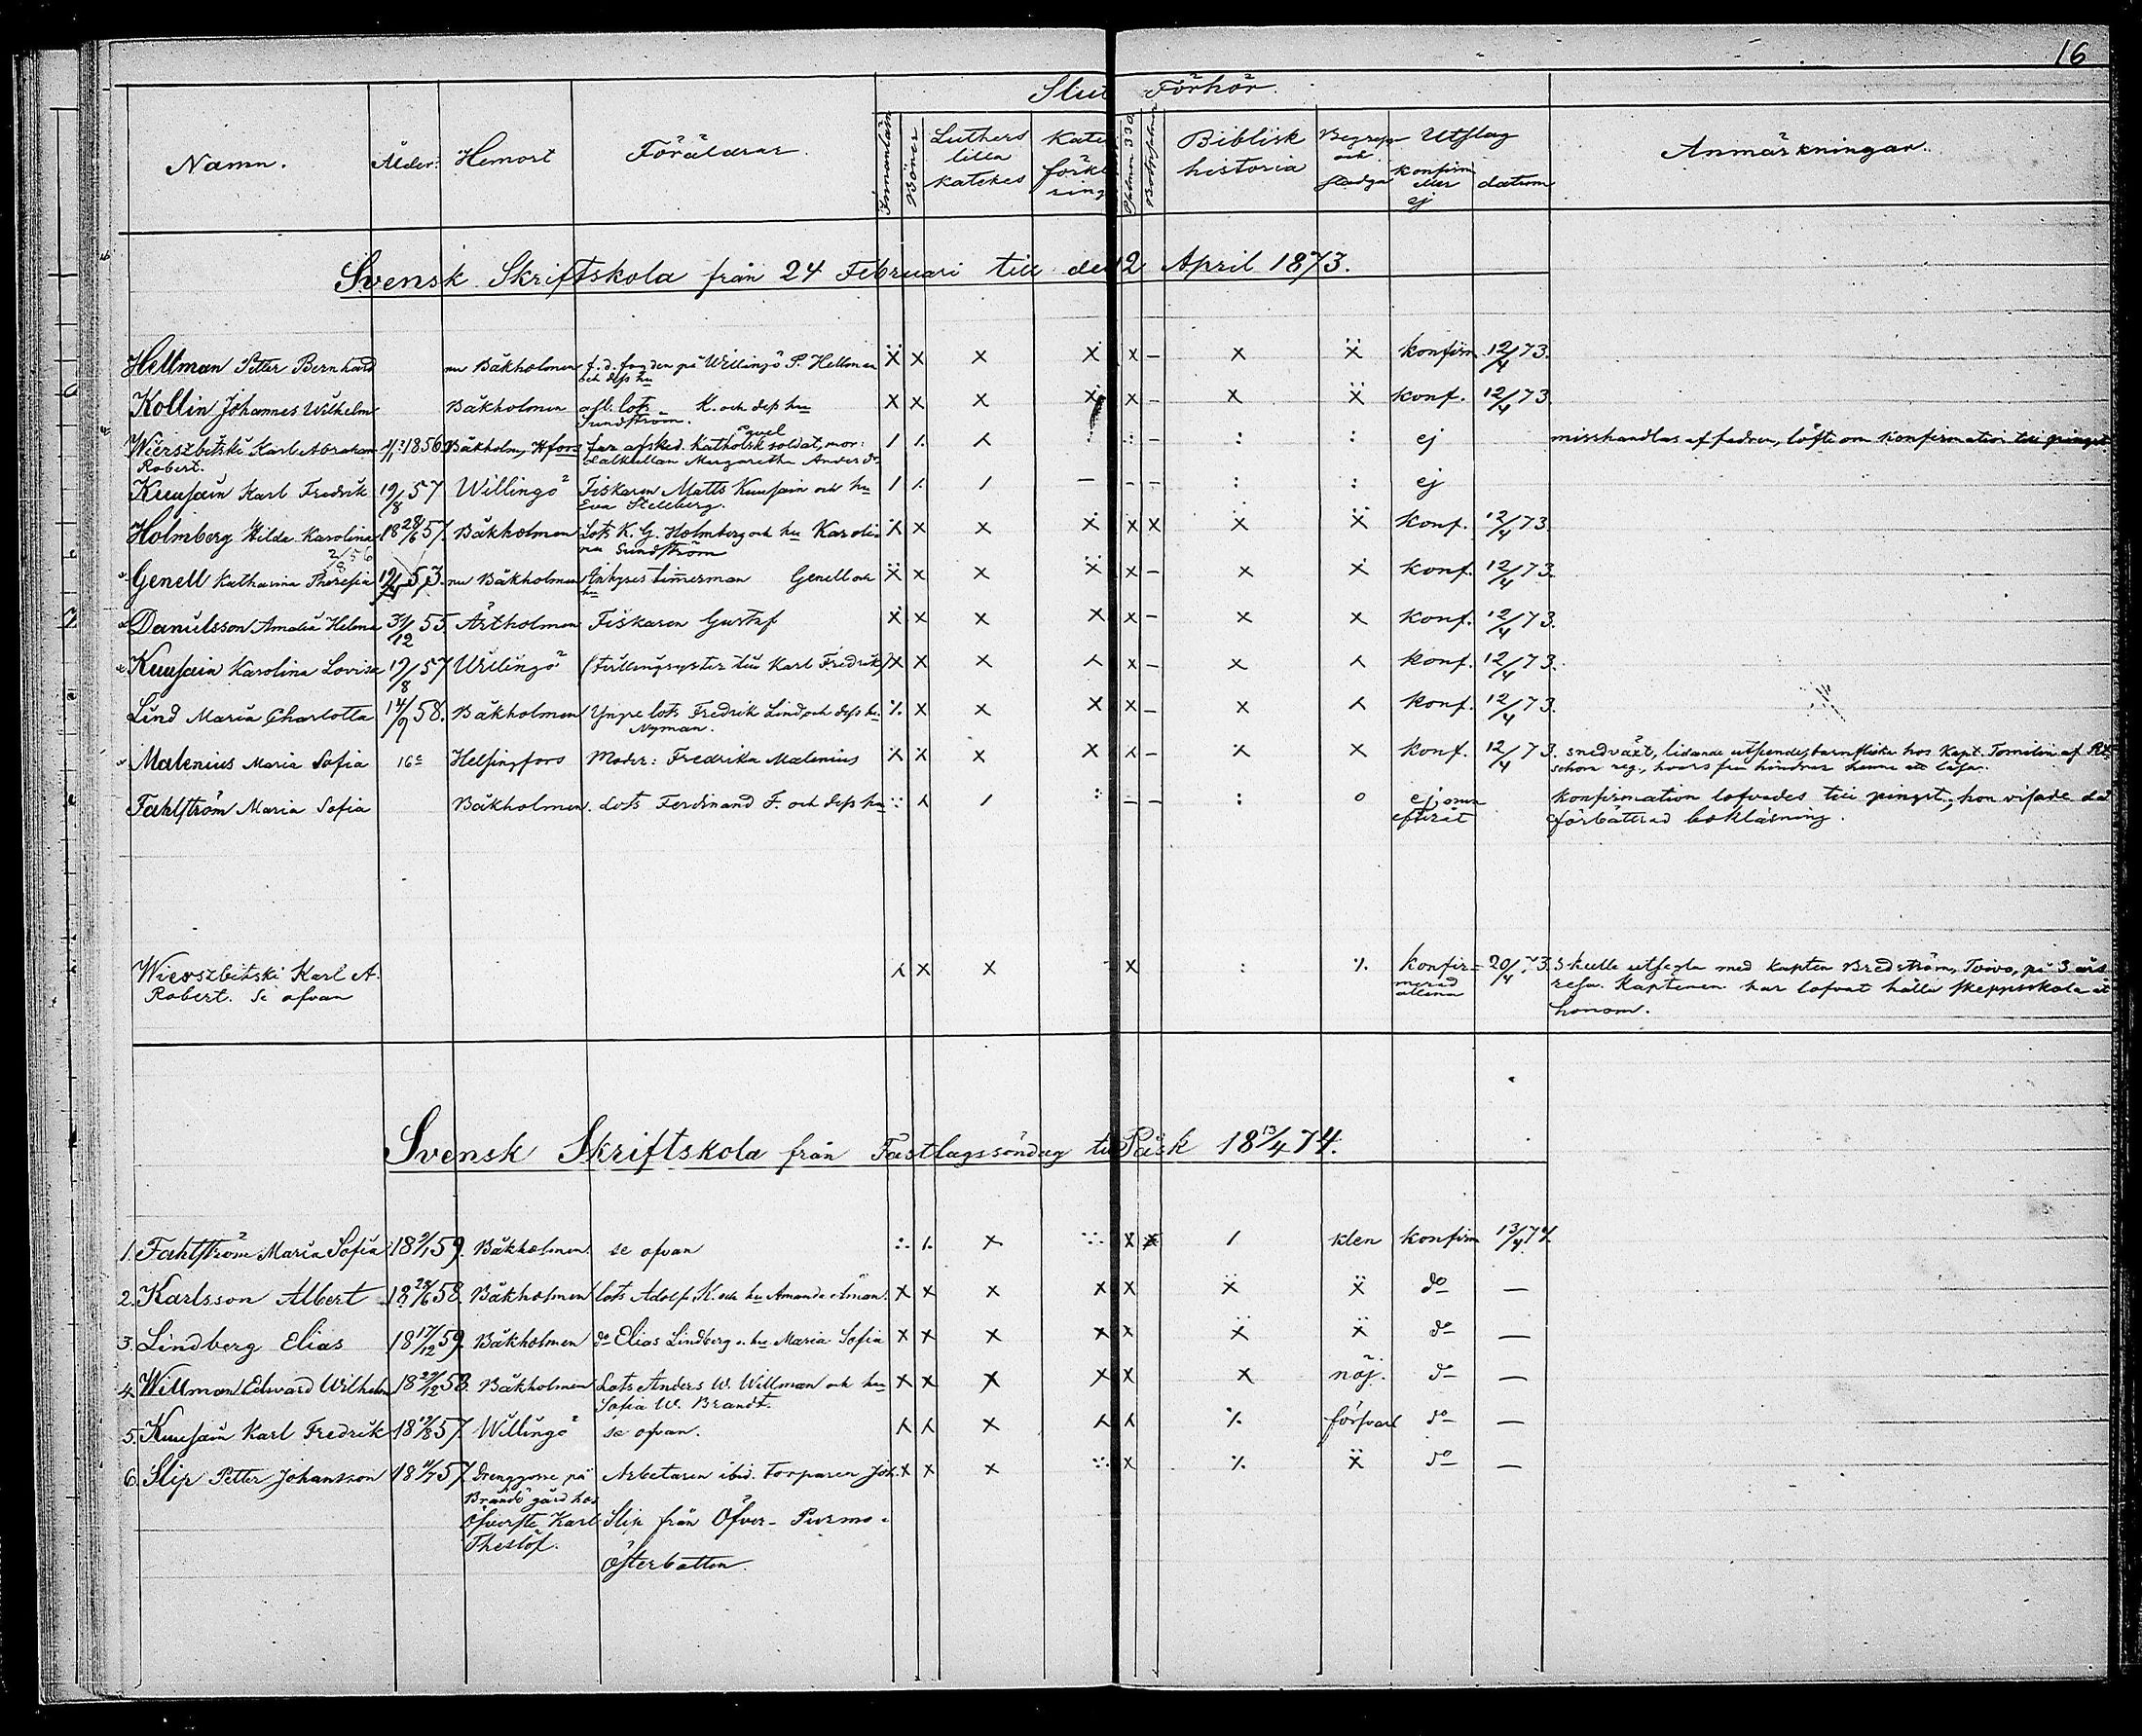 16
Slut Förhör
Namn. Ålder. Hemort Föräldrar Innanläsn Böner Luthers lilla katekes Kate förkl ring Psalmen 330 Botpsalmen Biblisk historia Begrepp och stadga Utslag konfirm eller ej datum Anmärkningar.
Svensk Skriftskola från 24 Februari till de 12 April 1873.
Hellman Petter Bernhard nu Båkholmen f. d. fogden på Willingö P. Hellman X X X X X – X X konfirm 12/4 73.
och dess hu
Kollin Johannes Wilhelm Båkholmen afl. lots K. och dess hu X X X X X – X X konf. 12/4 73
Sundström.
Wierszbitski Karl Abraham 1856 Båkholm, Hfors far afsked. Katholsk soldat, mor: ej misshandlas af fadren, löfte om konfirmation till pingst.
Robert. Dalkullan Margaretha Anders dr
Kuusain Karl Fredrik 19/8 57 Willingö Fiskaren Matts Kuusain och hu ej
Eva Stelberg.
Holmberg Hilda Karolina 18 28/6 57. Båkholmen Lots K. G. Holmberg och hu Karoli- X X X X X X X X konf. 12/4 73
na Sundström
2/8 56
Genell Katharina Theresia 19/4 53. nu Båkholmen timmerman Genell och X X X X X – X X konf. 12/4 73.
hu
Danielsson Amalia Helena 31/12 55 Ärtholmen Fiskaren Gustaf X X X X X – X X konf. 12/4 73.
Kuusain Karolina Lovisa 19/8 57 Willingö (tvillingsyster till Karl Fredrik) X X X X – X konf. 12/4 73.
Lind Maria Charlotta 14/9 58. Båkholmen Yngre lots Fredrik Lind och dess hu X X X X – X konf. 12/4 73.
Nyman.
Malenius Maria Sofia 16 Helsingfors Moder: Fredrika Malenius X X X X – X X konf. 12/4 73. snedväxt, lidande utseende, barnflicka hos Kapt. Tomilin af
reg., hvars fru hindrar henne att läsa.
Fahlström Maria Sofia Båkholmen. Lots Ferdinand F. och dess hu ej, men konfirmation lofvades till pingst, hon visade då
efteråt förbättrad bokläsning.
Wierszbitski Karl A. X X X konfir- 20/4 73. Skulle utsegla med Kapten Bredström, Toivo, på 3 års
Robert. Se ofvan merad resa. Kaptenen har lofvat hålla skeppsskola åt
allena honom.
Svensk Skriftskola från Fastlagssöndag ti Påsk 18 13/4 74.
1. Fahlström Maria Sofia 18 9/1 59. Båkholmen. se ofvan X X X / klen konfirm 13/4 74
2. Karlsson Albert 18 28/6 58. Båkholmen Lots Adolf K. och hu Amanda Åman. X X X X X X X do —
3. Lindberg Elias 18 17/12 59. Båkholmen do Elias Lindberg o. hu Maria Sofia X X X X X X X do —
4. Willman Edvard Wilhelm 18 29/12 58. Båkholmen Lots Anders W. Willman och hu X X X X X X nöj. do —
Sofia W. Brandt.
5. Kuusain Karl Fredrik 18 19/8 57. Willingö se ofvan. X försvarl do —
6. Slip Petter Johansson 18 57. Drenggosse på Arbetaren ibid. torparen Joh. X X X X X do —
Brändö gård hos
Öfverste Karl Slip från Öfver-Purmo.
Theslöf.
Österbotten.